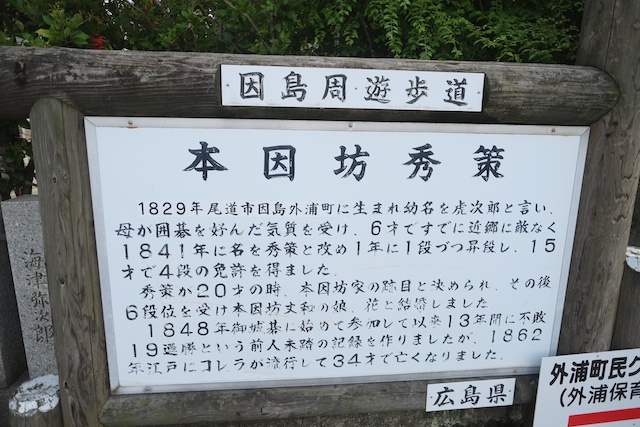 因島周遊歩道
本因坊秀策
1829年尾道市因島外浦町に生まれ幼名を虎次郎と言い、
母か囲碁を好んだ気質を受け、6才ですでに近郷に敵なく
1841年に名を秀策と改め1年に1段づつ昇段し、15
才で4段の免許を得ました。
秀策か20才の時、本因坊家の跡目と決められ、その後
6段位を受け本因坊丈和の娘、花と結婚しました
1848年御城碁に始めて参加して以来13年間に不敗
19連勝という前人未踏の記録を作りましたが、1862
年江戸にコレラが流行して34才で亡くなりました。
広島県
海津弥次郎
外浦町民
(外浦保育